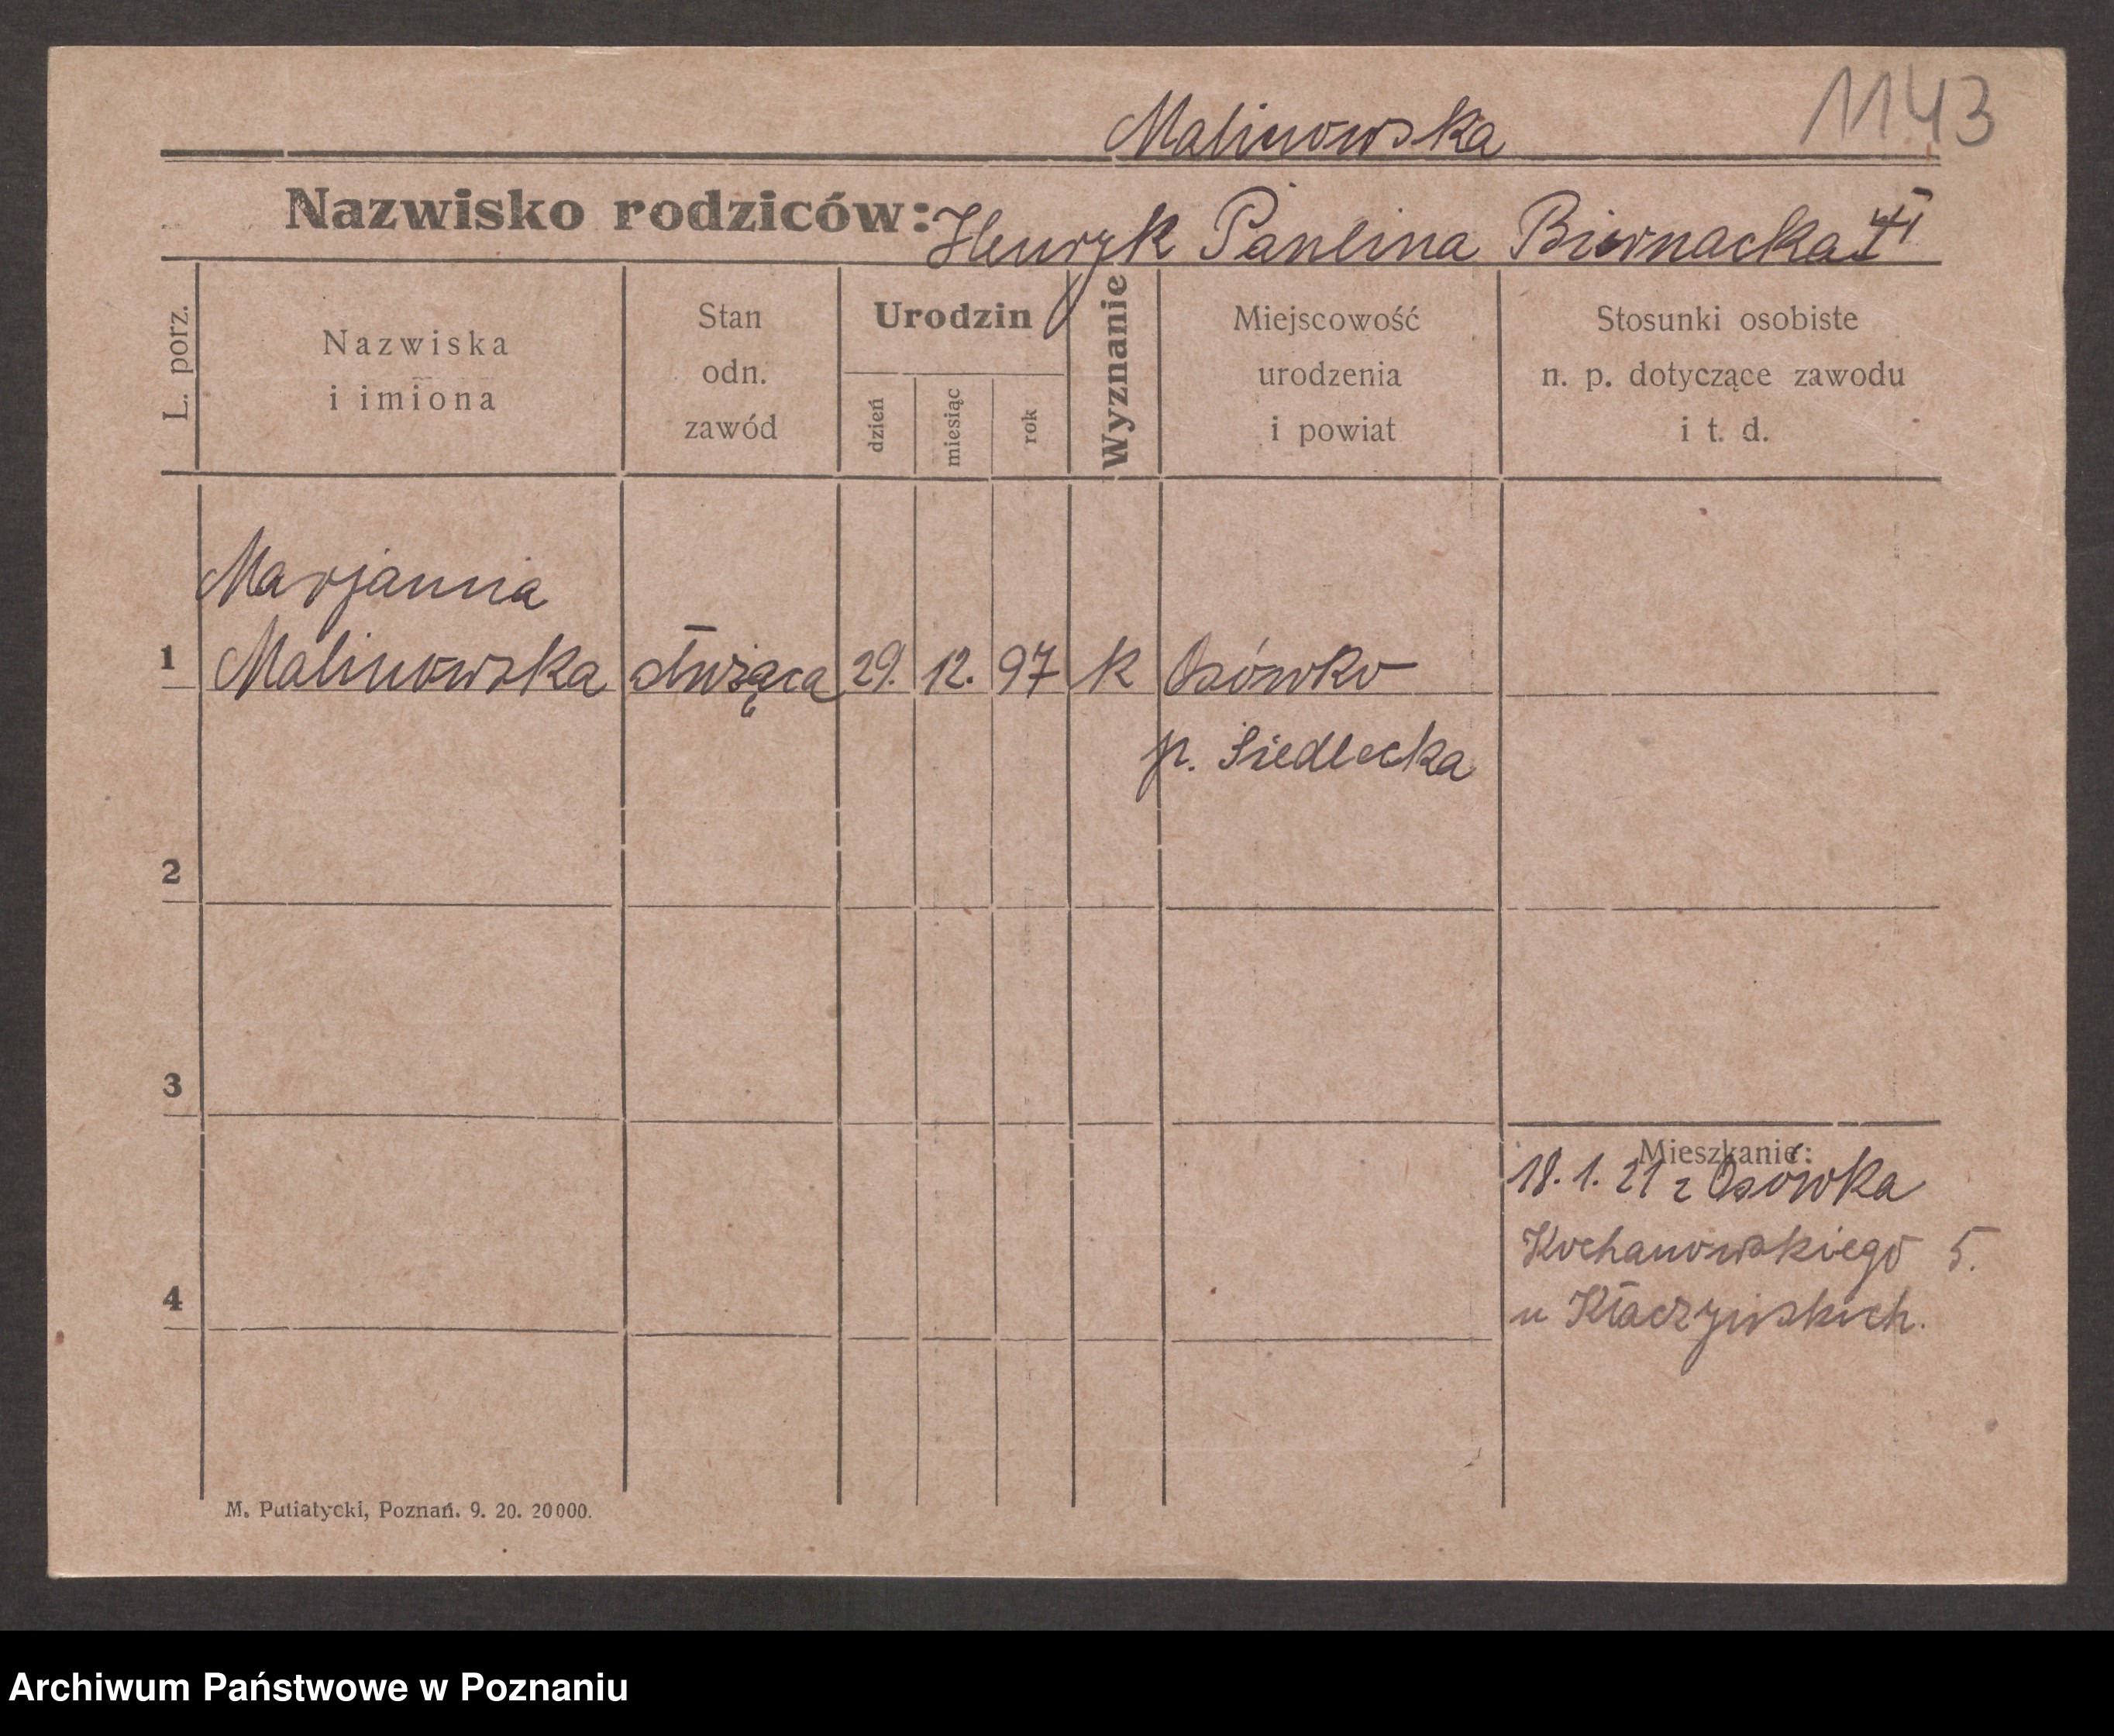 1143
Malinowska
Nazwisko rodziców: Henryk Paulina Biernacka
L. porz.
Nazwiska
i imiona
Stan
odn.
zawód
Urodzin
dzień
miesiąc
rok
Wyznanie
Miejscowość
urodzenia
i powiat
Stosunki osobiste
n. p. dotyczące zawodu
i t. d.
Marjanna
1 Malinowska służąca 29. 12. 97 k Osówko
p. Siedlecka
2
3
Mieszkanie:
18. 1. 21 z Osówka
Kochanowskiego 5.
4
u Kłaczyńskich.
M. Putiatycki, Poznań. 9. 20. 20000.
Archiwum Państwowe w Poznaniu